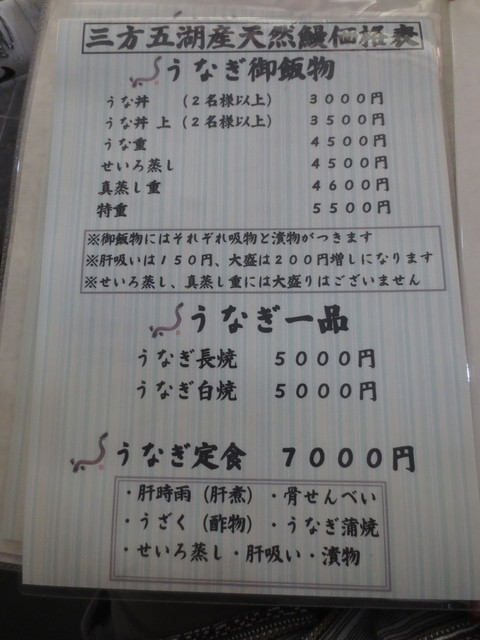 三方五湖産天然鰻価格表
うなぎ御飯物
うな丼 (2名様以上) 3000円
うな丼 上 (2名様以上) 3500円
うな重 4500円
せいろ蒸し 4500円
真蒸し重 4600円
特重 5500円
※御飯物にはそれぞれ吸物と漬物がつきます
※肝吸いは150円、大盛は200円増しになります
※せいろ蒸し、真蒸し重には大盛りはございません
うなぎ一品
うなぎ長焼 5000円
うなぎ白焼 5000円
うなぎ定食 7000円
・肝時雨(肝煮)・骨せんべい
・うざく(酢物)・うなぎ蒲焼
・せいろ蒸し・肝吸い・漬物